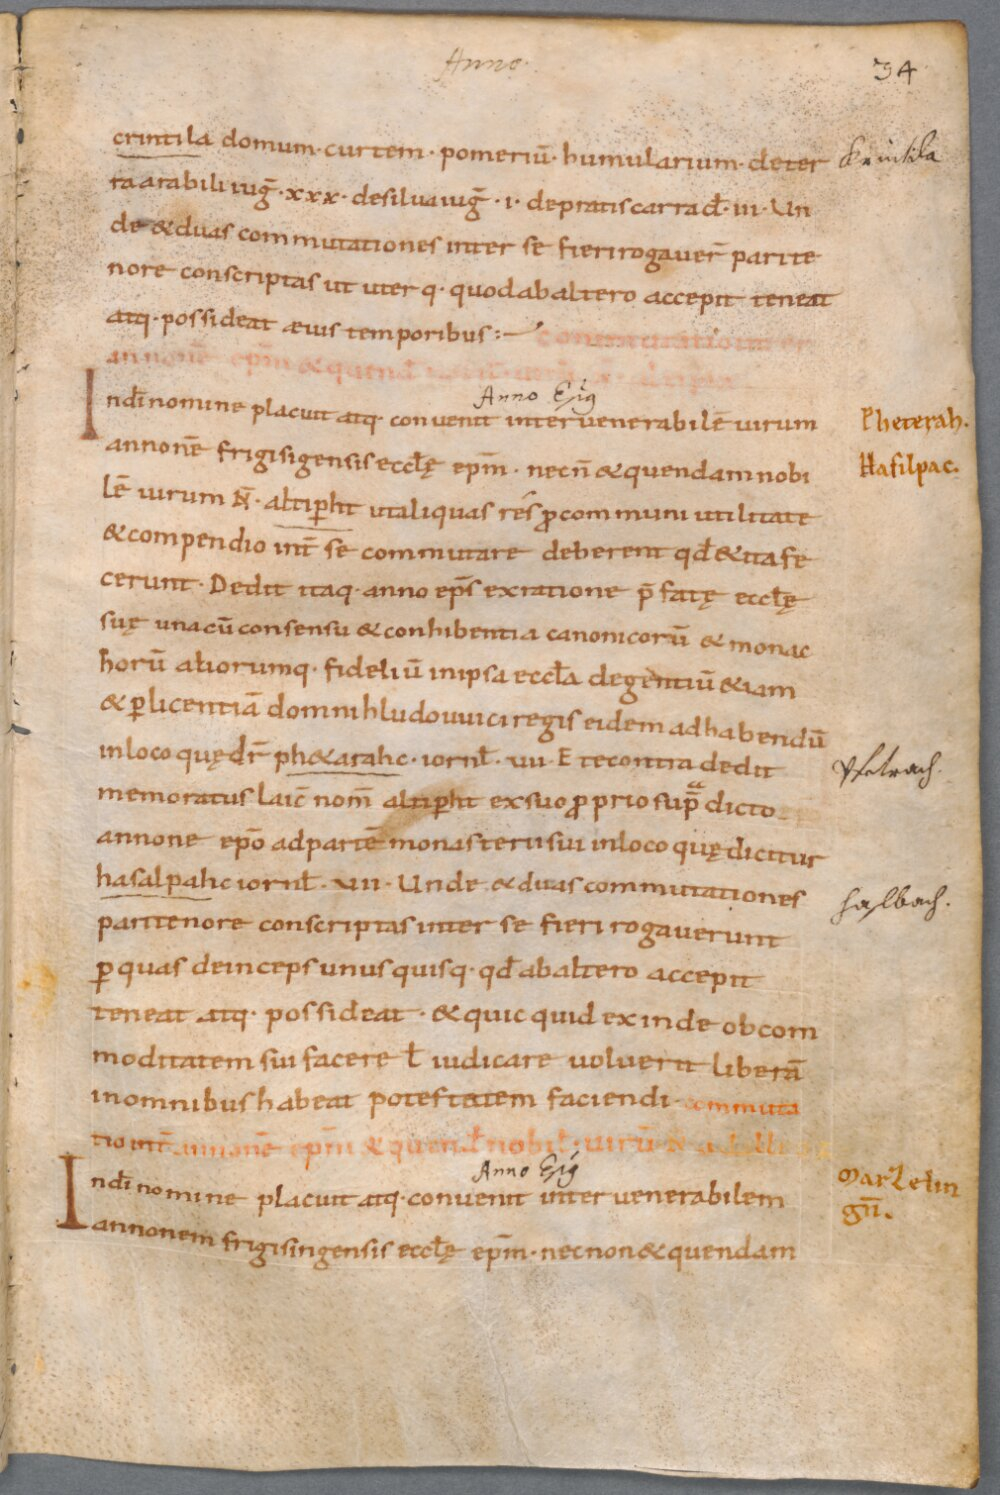 Anno
34
crintila domum· curtem· pomeriū· humularium· deter
Krintila
ra arabili iug̅· xxx· desilua iug̅· i· depratis carrad̅· iii· Un
de &duas commutationes inter se fierirogauer̅ parite
nore conscriptas ut uterq· quodabaltero accepit teneat
atq· possideat æius temporibus:~ commutatio inter
annonē ep̅m &quend̅
Anno Ep̅s
Indi̅nomine placuit atq· conuenit interuenerabilē uirum
Pheterah.
annonē frigisigensis eccl̅ę ep̅m· necn̅ &quendamnobi
Hasilpac.
lē uirum N̅· altip̲ht utaliquas res ꝓcommuni utilitate
&compendio int̅ se commutare deberent qd̅ &itafe
cerunt· Dedit itaq· anno ep̅s exratione p̅fatę eccl̅ę
suę unacū consensu &conhibentia canonicorū &monac
horū aliorumq· fideliū inipsa eccl̅a degentiū &iam
&ꝑlicentiā domnihludouuiciregis eidem adhabendū
inloco quędr̅ ph&arahc· iornl̅· vii· E tecontra dedit
Pfetrach.
memoratus laic̅ nom̅ altiꝑht exsuo ꝓprio sup̅ dicto
annone ep̅o adpartē monasteriisui inloco quędicitur
hasalpahc iornl̅· vii· Unde &duas commutationes
haslbach.
paritenore conscriptas inter se fieri rogauerunt
ꝑquas deinceps unusquisq· qd̅ abaltero accepit
teneat atq· possideat· &quicquid exinde obcom
moditatem sui facere l̅ iudicare uoluerit liberā
inomnibus habeat potestatem faciendi· commuta
tio int̅ annonē ep̅m &quend̅ nobil̅· uirū N̅
Anno Ep̅s
Indi̅nomine placuit atq· conuenit inter uenerabilem
annonem frigisingensis eccl̅ę ep̅m· necnon &quendam